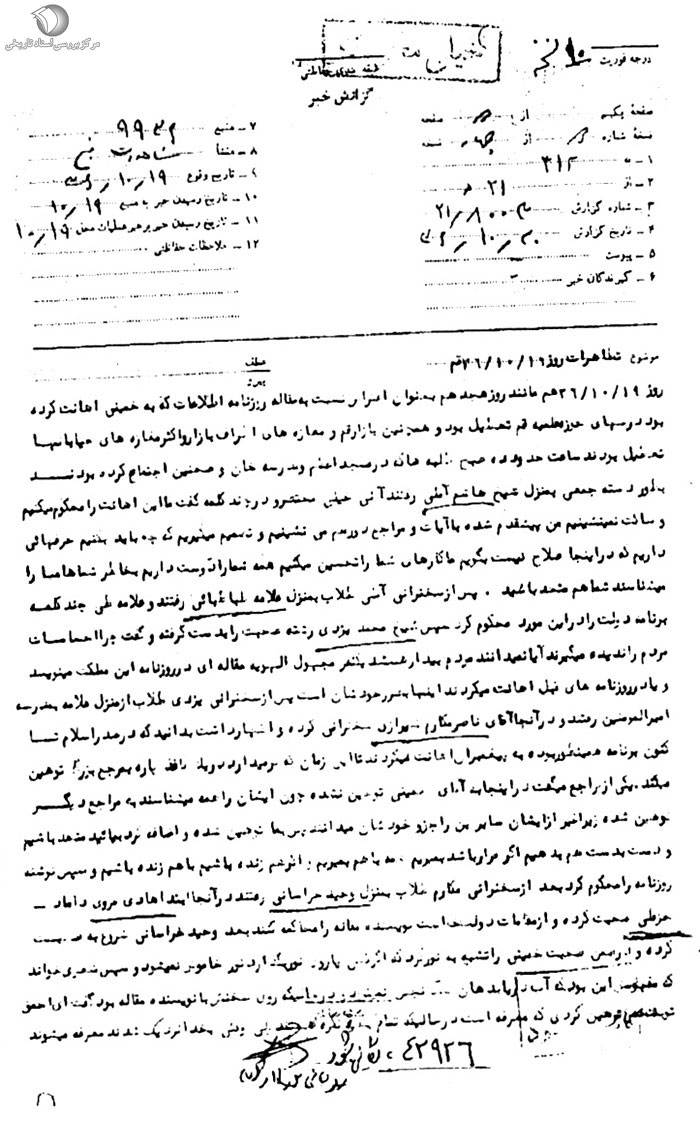 مرکز بررسی اسناد تاریخی
درجه فوریت
طبقه بندی حفاظتی
گزارش خبر
صفحه یکم از صفحه
نسخه شماره از نسخه
۱ - به ۳۱۲
۲ - از ۲۱ ه
۳ - شماره گزارش
۴ - تاریخ گزارش
۵ - پیوست
۶ - گیرندگان خبر
۷ - منبع
۸ - منشأ
۹ - تاریخ وقوع ۱۹/۱۰/
۱۰ - تاریخ رسیدن خبر به منبع ۱۹/۱۰
۱۱ - تاریخ رسیدن خبر به رهبر عملیات ۱۹/۱۰
۱۲ - ملاحظات حفاظتی
موضوع تظاهرات روز ۳۶/۱۰/۱۹ قم
عطف
پیرو
روز ۳۶/۱۰/۱۹ هم مانند روز هیجدهم بعنوان اعتراض نسبت به مقاله روزنامه اطلاعات که به خمینی اهانت کرده
بود درسهای حوزه علمیه قم تعطیل بود و همچنین بازار قم و مغازه های اطراف بازار و اکثر مغازه های خیابانها
تعطیل بودند ساعت حدود ده صبح طلبه ها در مسجد اعظم و مدرسه خان و صحنین اجتماع کرده بودند
بطور دسته جمعی بمنزل شیخ هاشم آملی رفتند آملی خیلی مختصر و در چند کلمه گفت ما این اهانت را محکوم میکنیم
و ساکت نمینشینیم من پیشقدم شده با آیات و مراجع دور هم می نشینیم و تصمیم میگیریم که چه باید بکنیم حرفهائی
داریم که در اینجا صلاح نیست بگویم ما کارهای شما را تحسین میکنیم همه شما را دوست داریم بخاطر شما ها ما را
میشناسند شما هم متحد باشید . پس از سخنرانی آملی طلاب بمنزل علامه طباطبائی رفتند و علامه طی چند کلمه
برنامه دولت را در این مورد محکوم کرد سپس شیخ محمد یزدی رشته صحبت را بدست گرفته و گفت چرا احساسات
مردم را ندیده میگیرند آیا نمیدانند مردم بیدار شدند یکنفر مجهول الهویه مقاله ای در روزنامه این مملکت مینویسد
و یا در روزنامه های قبل اهانت میکردند اینها بضرر خودشان است پس از سخنرانی یزدی طلاب از منزل علامه بمدرسه
امیرالمومنین رفتند و در آنجا آقای ناصر مکارم شیرازی سخنرانی کرده و اظهار داشت بدانید که در صدر اسلام تا
کنون برنامه همینطور بوده به پیغمبر اهانت میکردند تا این زمان که برمیدارد و یک کاغذ پاره به مرجع بزرگ توهین
میکند . یکی از مراجع میگفت در اینجا به آقای خمینی توهین نشده چون ایشان را همه میشناسند به مراجع دیگر
توهین شده زیرا غیر از ایشان سایرین را جزو خودشان میدانند پس بما توهین شده و اضافه کرد بیائید متحد باشیم
و دست بدست هم بدهیم اگر قرار باشد بمیریم همه با هم بمیریم و اگر هم زنده باشیم با هم زنده باشیم و سپس نوشته
روزنامه را محکوم کرد بعد از سخنرانی مکارم طلاب بمنزل وحید خراسانی رفتند در آنجا ابتدا هادی مروی داماد -
خزعلی صحبت کرده و از مقامات دولت خواست نویسنده مقاله را محاکمه کنند بعد وحید خراسانی شروع به صحبت
کرده و در ضمن صحبت خمینی را تشبیه به نور کرد که اگر در نور خاموش نمیشود و سپس شعری خواند
که مفهومش این بود که آب دریا بدهان سگ نجس نمیشود در حالیکه روی سخنش با نویسنده مقاله بود گفت ای احمق
توهین کردی که معرفه است در سالیکه تمام نکره هستند وقتی بخدا نزدیک شدند معرفه میشوند
۴۲۹۲۶